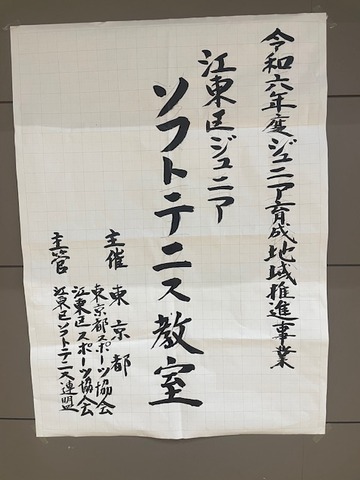 令和六年度ジュニア育成地域推進事業
江東区ジュニア
ソフトテニス教室
主催 東京都
東京都スポーツ協会
江東区スポーツ協会
主管 江東区ソフトテニス連盟